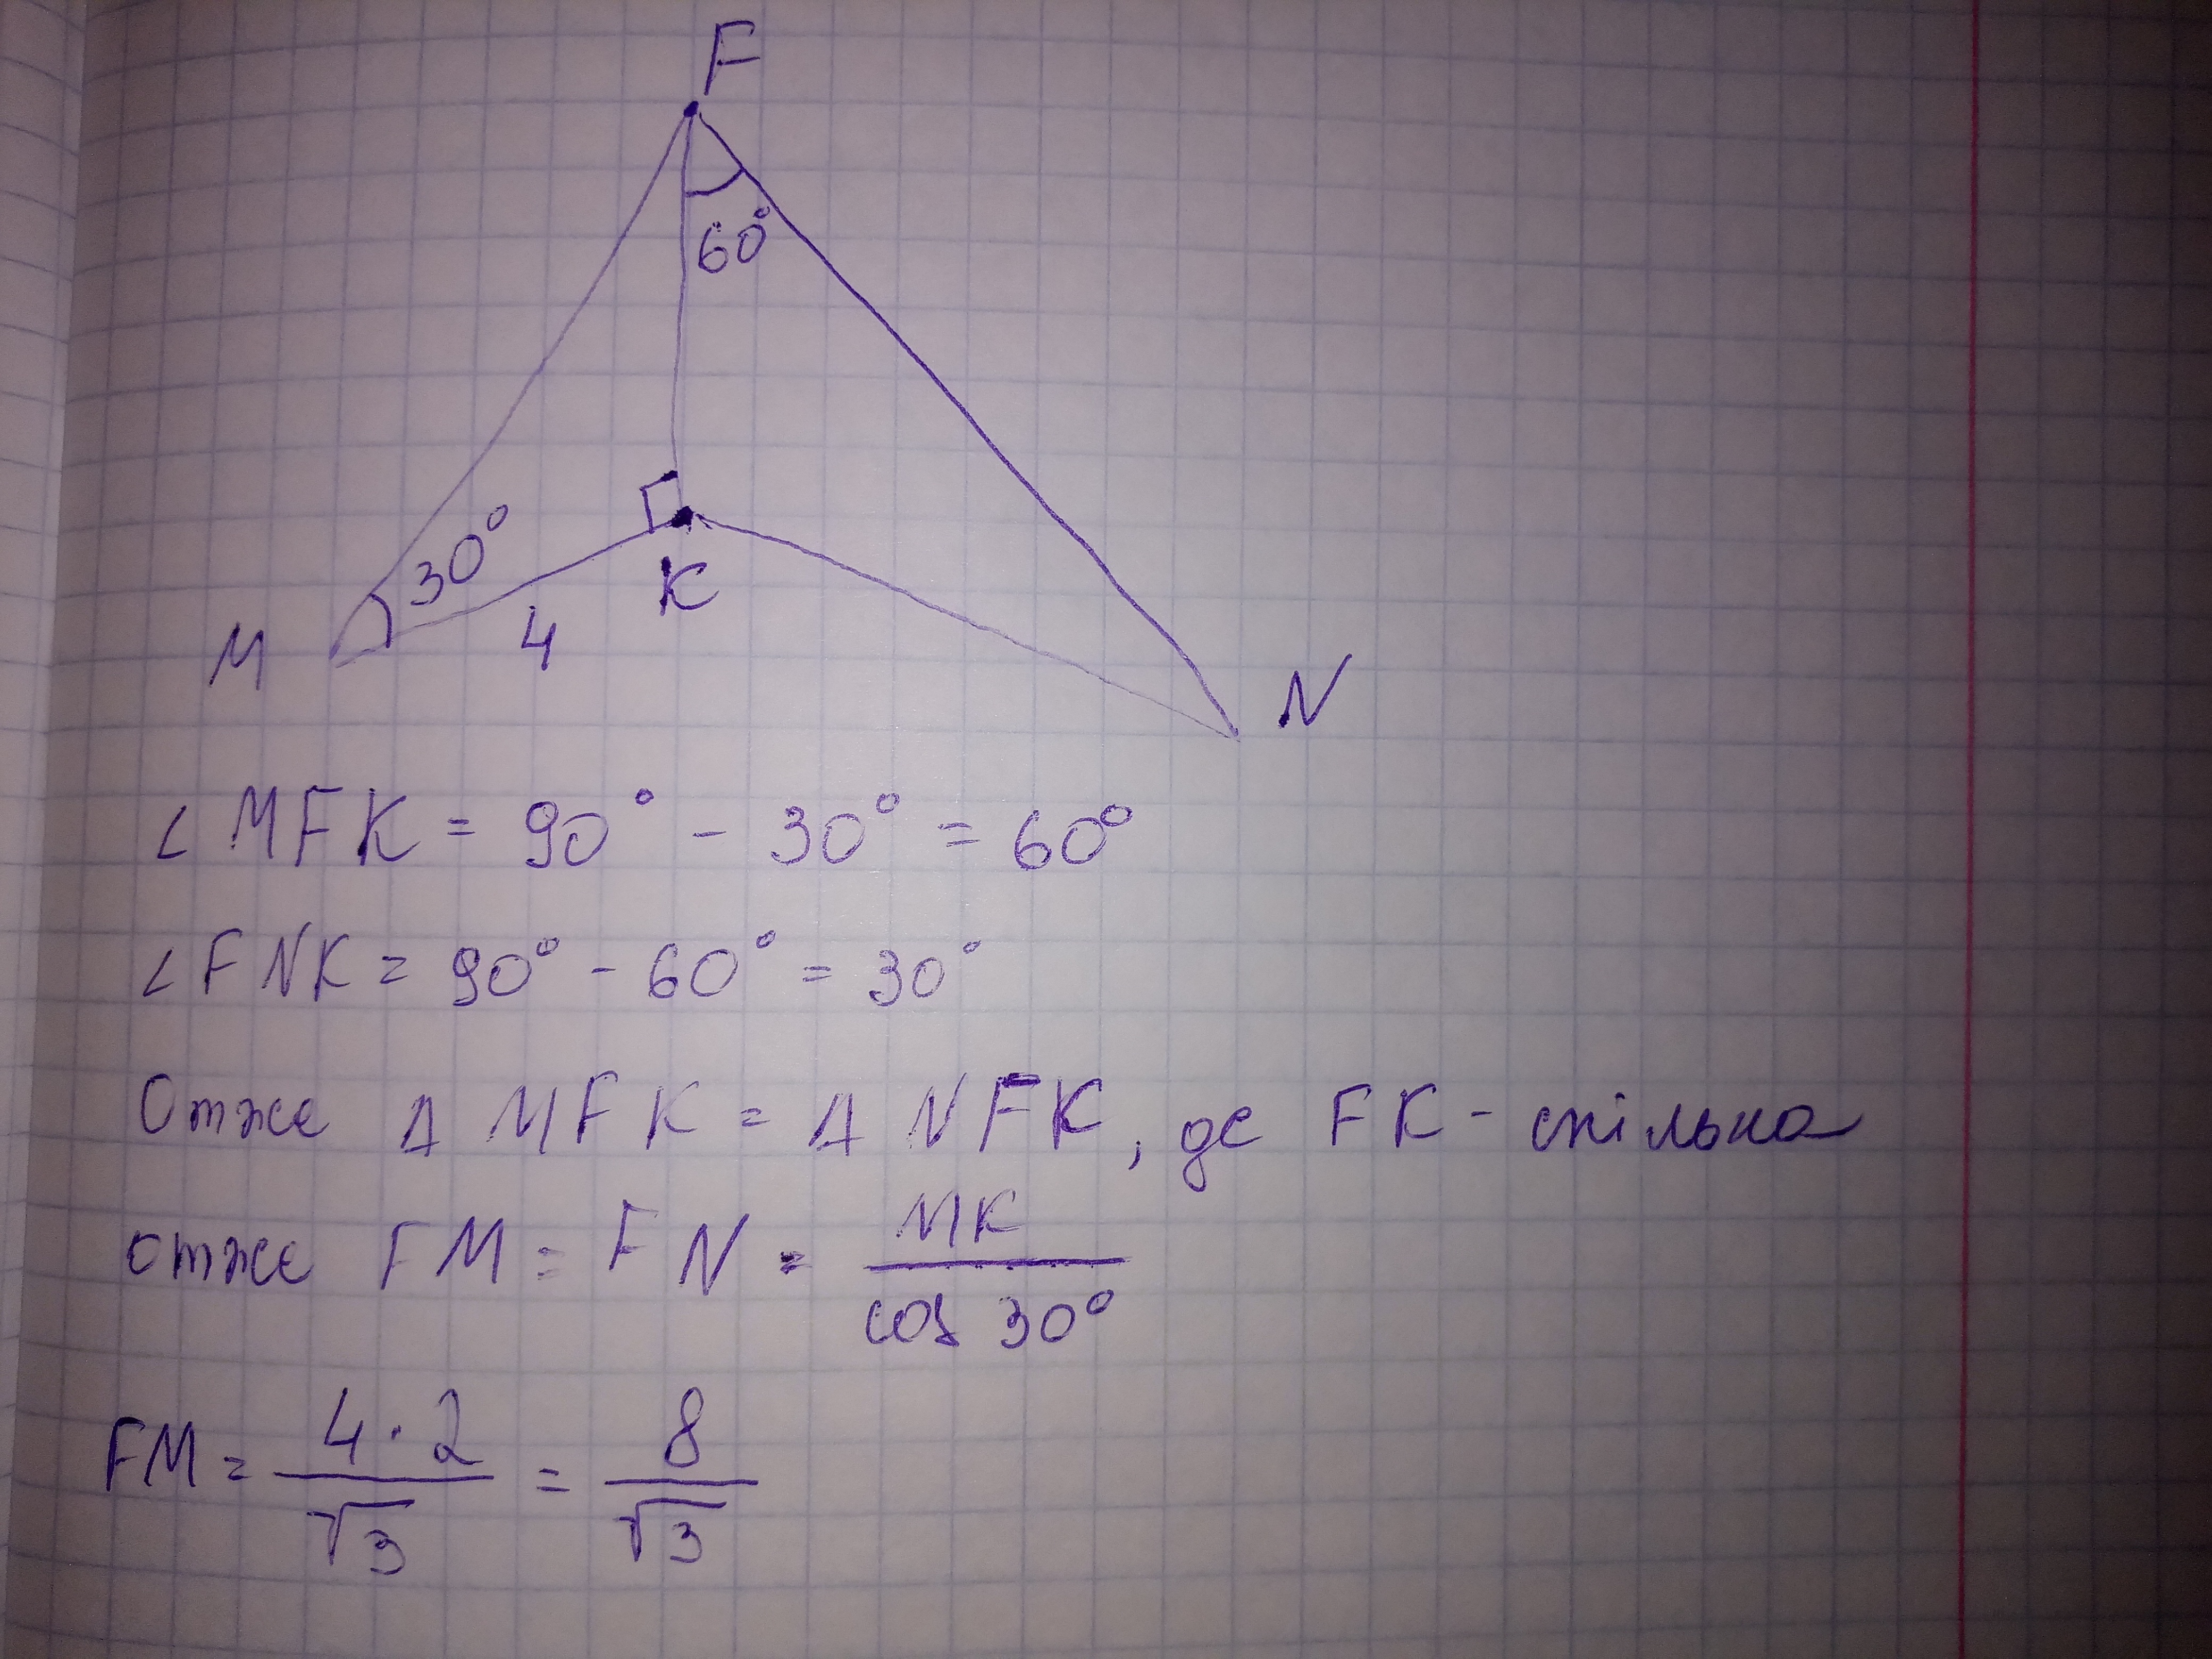 F
60°
30°
K
M
4
N
∠ MFK = 90° - 30° = 60°
∠ FNK = 90° - 60° = 30°
Отже Δ MFK = Δ NFK, де FK - спільна
отже FM = FN = MK / cos 30°
FM = 4·2 / √3 = 8 / √3